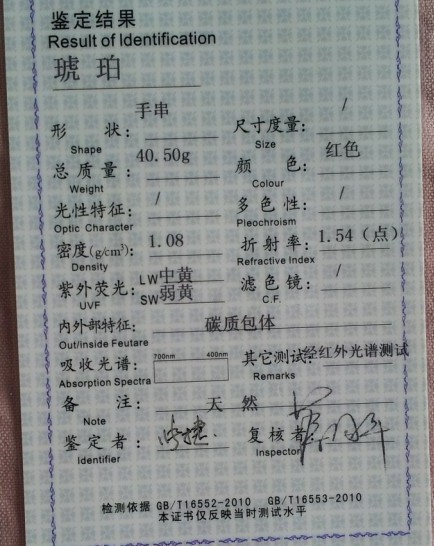 鉴定结果
Result of Identification
琥珀
形 状: 手串 尺寸度量: /
Shape Size
总质量: 40.50g 颜 色: 红色
Weight Colour
光性特征: / 多色性: /
Optic Character Pleochroism
密度(g/cm³): 1.08 折射率: 1.54(点)
Density Refractive Index
紫外荧光: LW中黄 滤色镜: /
UVF SW弱黄 C.F.
内外部特征: 碳质包体
Out/inside Feutare
吸收光谱: 700nm 400nm 其它测试:经红外光谱测试
Absorption Spectra Remarks
备 注: 天然
Note
鉴定者: 复核者:
Identifier Inspector
检测依据 GB/T16552-2010 GB/T16553-2010
本证书仅反映当时测试水平